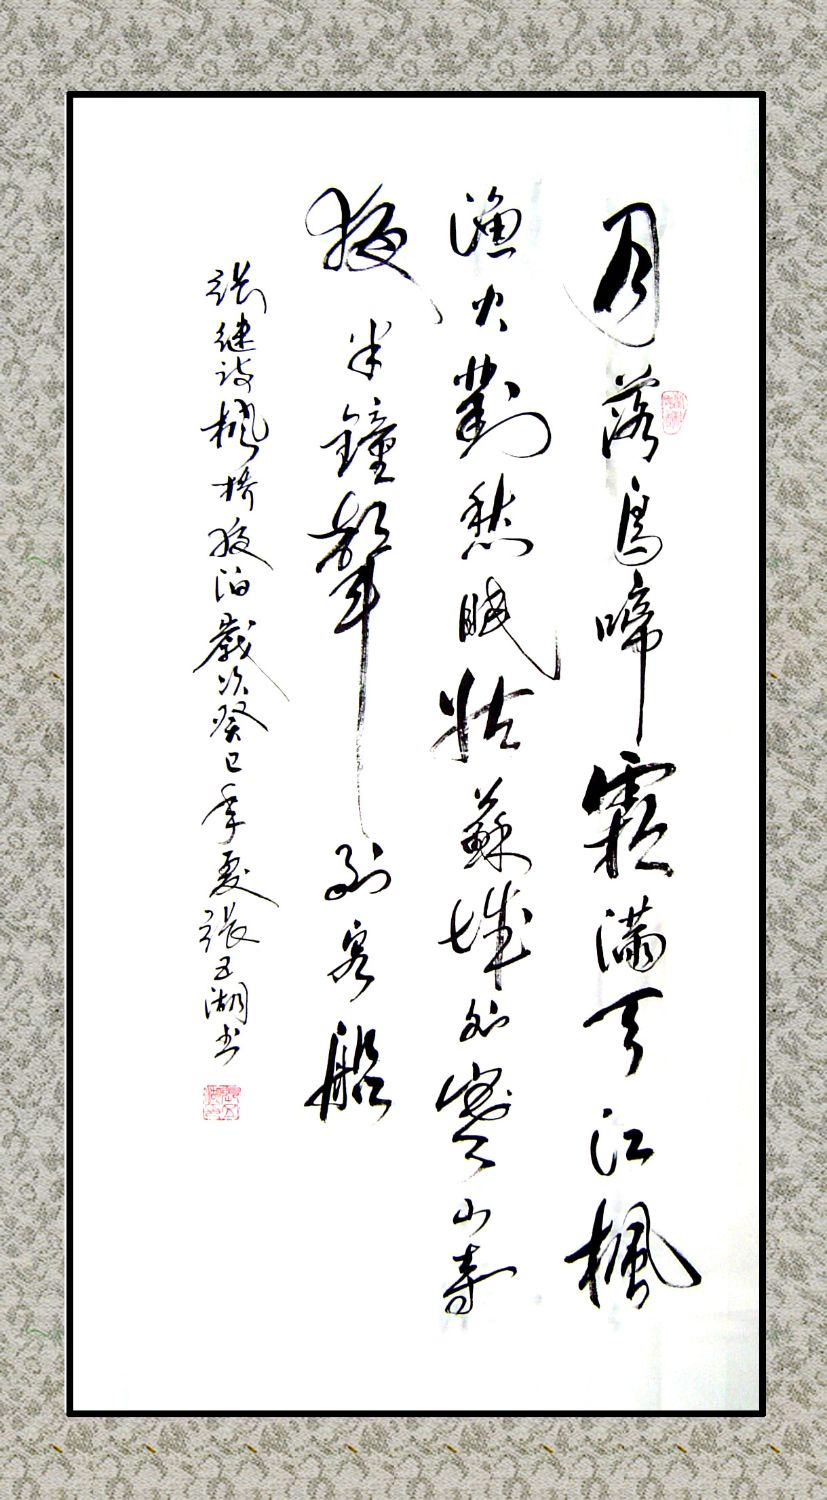 月落烏啼霜滿天江楓
漁火對愁眠姑蘇城外寒山寺
夜半鐘聲到客船
張継诗楓橋夜泊歲次癸巳年夏張五湖书